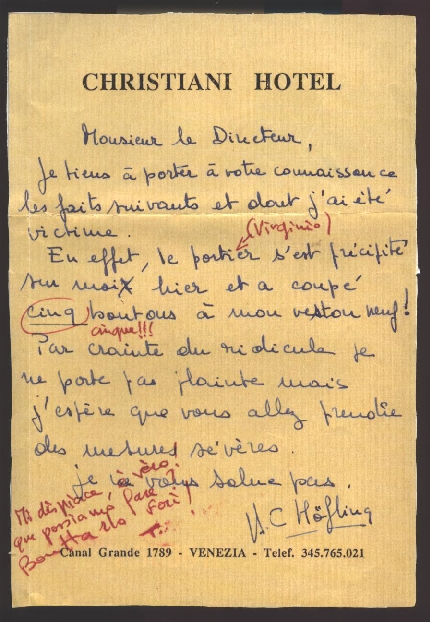 CHRISTIANI HOTEL
Monsieur le Directeur,
Je tiens à porter à votre connaissance
les faits suivants et dont j'ai été
victime.
(Virginio)
En effet, le portier s'est précipité
sur moi hier et a coupé
cinq boutons à mon veston neuf!
cinque!!!
Par crainte du ridicule je
ne porte pas plainte mais
j'espère que vous allez prendre
des mesures sévères.
Je ne vous salue pas.
H. C Höfling
Mi dispiace, è vero!
que possiamo fare
Buttarlo fori!
Canal Grande 1789 - VENEZIA - Telef. 345.765.021